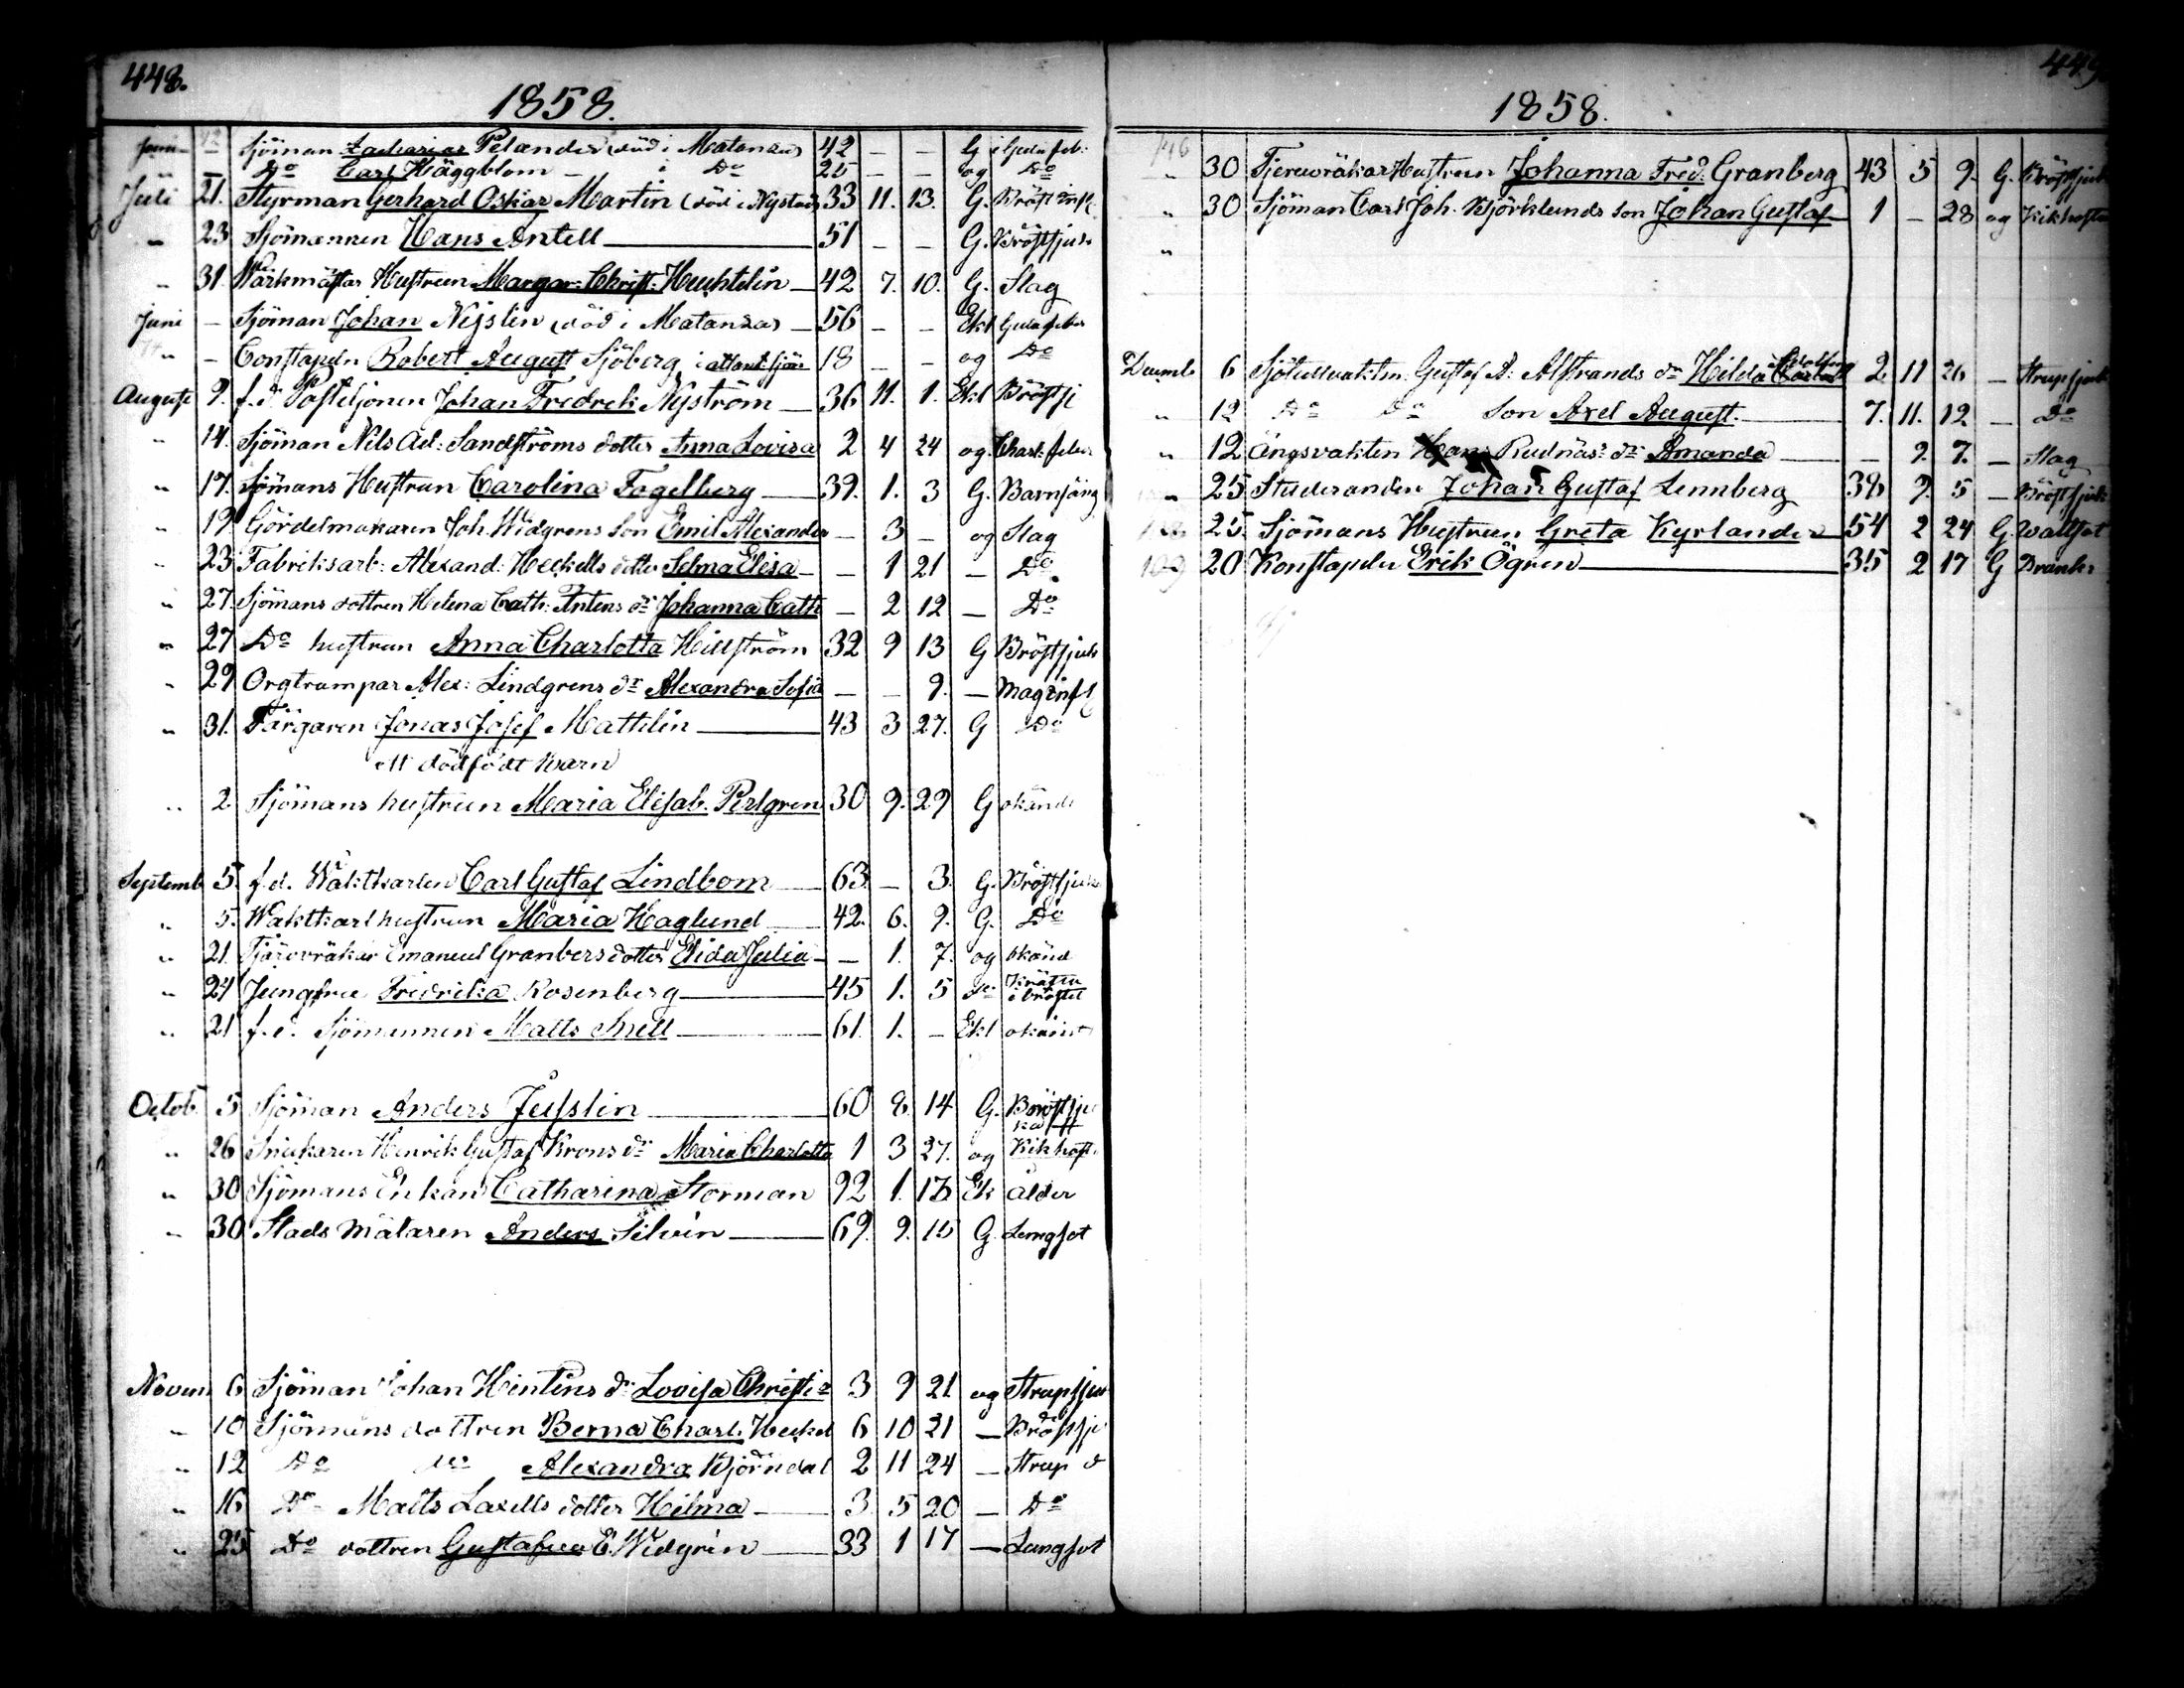 448.
1858.
Juni 12 Sjöman Zacharias Pelander (död i Matanzas 42 — — G. Gula feb:
Do Carl Häggblom — i Do 25 — — og Do
Juli 21. Styrman Gerhard Oskar Martin (död i Nystad) 33 11. 13. G. Bröst infl.
" 23 Sjömannen Hans Antell 51 — — G. Bröstsjuk
" 31. Wärkmästar Hustrun Margar. Christ: Heuhtelin 42 7. 10. G. Slag
Juni — Sjöman Johan Nyslin (död i Matanzas — 56 — — Ekl Gula feber
" — Constapeln Robert August Sjöberg i atlant. sjön 18 — og Do
Augusti 9. f.d. Postiljonen Johan Fredrek Nyström — 36 11. 1. Ekl Bröstsj
" 14. Sjöman Nils Ad: Sandströms dotter Anna Lovisa 2 4 24 og. Charl: feber
" 17. Sjömans Hustrun Carolina Fagelberg 39. 1. 3 G. Barnsäng
" 19 Gördelmakaren Joh. Widgrens Son Emil Alexander — 3 — og Slag
" 23 Fabriksarb: Alexand: Heckells dotter Selma Elisa — — 1 21 — Do
" 27 Sjömans dottren Helena Cath: Antens dr Johanna Cath — 2 12 — Do
" 27 Do hustrun Anna Charlotta Hellström 32 9 13 G Bröstsjuk
" 29 Orgtrampar Alex: Lindgrens dr Alexandra Sofia — — 9. — Mag infl
" 31. Färgaren Jonas Josef Mathlin 43 3 27. G Do
ett dödfödt barn
" 2 Sjömans hustrun Maria Elisab. Perlgren 30 9. 29 G okänd
Septemb 5. f.d. Waktkarlen Carl Gustaf Lindbom 63 — 3. G. Bröstsjuk
" 5. Waktkarl hustrun Maria Haglund 42. 6. 9. G. Do
" 21. Tjärovräkar Emanuel Granbergs dotter Elida Julia — — 1. 7. og okänd
" 24 Jungfru Fredrika Rosenberg 45 1. 5 do Kräfta
i bröstet
" 21 f.d. Sjömannen Matts Snell 61. 1. — Ekl okänd
Octob. 5 Sjöman Anders Jusslin 60 8. 14 G. Bröstsju
ka
" 26 Snickaren Henrik Gustaf Krons dr Maria Charlotta 1 3 27. og Kikhost.
" 30 Sjömans Enkan Catharina Storman 92 1. 13 Ek ålder
" 30 Stads Mälaren Anders Silvén 69. 9. 15 G Lungsot
Novem 6 Sjöman Johan Hinténs dr Lovisa Christi:a 3 9 21 og Strupsjuk
" 10 Sjömans dottren Berna Charl: Heckel 6 10 21 — Bröstsj
" 12 Do do Alexandra Björndal 2 11 24 — Strup d
" 16 Do Matts Laxells dotter Hilma 3 5 20 — Do
" 25 Do dottren Gustafva E. Widgrén 33 1 17 — Lungsot
449
1858.
" 30 Tjeruvräkar Hustrun Johanna Fred: Granberg 43 5 9. G. Bröstsjuk
" 30 Sjöman Carl Joh. Björklunds son Johan Gustaf 1 — 28 og Kikhosta
"
Decemb 6 Sjötullvaktm. Gustaf A: Alstrands dr Hilda 2 11 26 — Strupsjuk
" 12 Do Do Son Axel August. 7. 11. 12 — Do
" 12 Ängsvakten Hans Rudnäs: dr Amanda — 9. 7. — Slag
" 25 Studeranden Johan Gustaf Lennberg 38 9. 5 — Bröstsjuk
25. Sjömans Hustrun Greta Kyrlander 54 2 24 G. Wattsot
109 20 Konstapeln Erik Ögren 35 2 17 G Drunkn